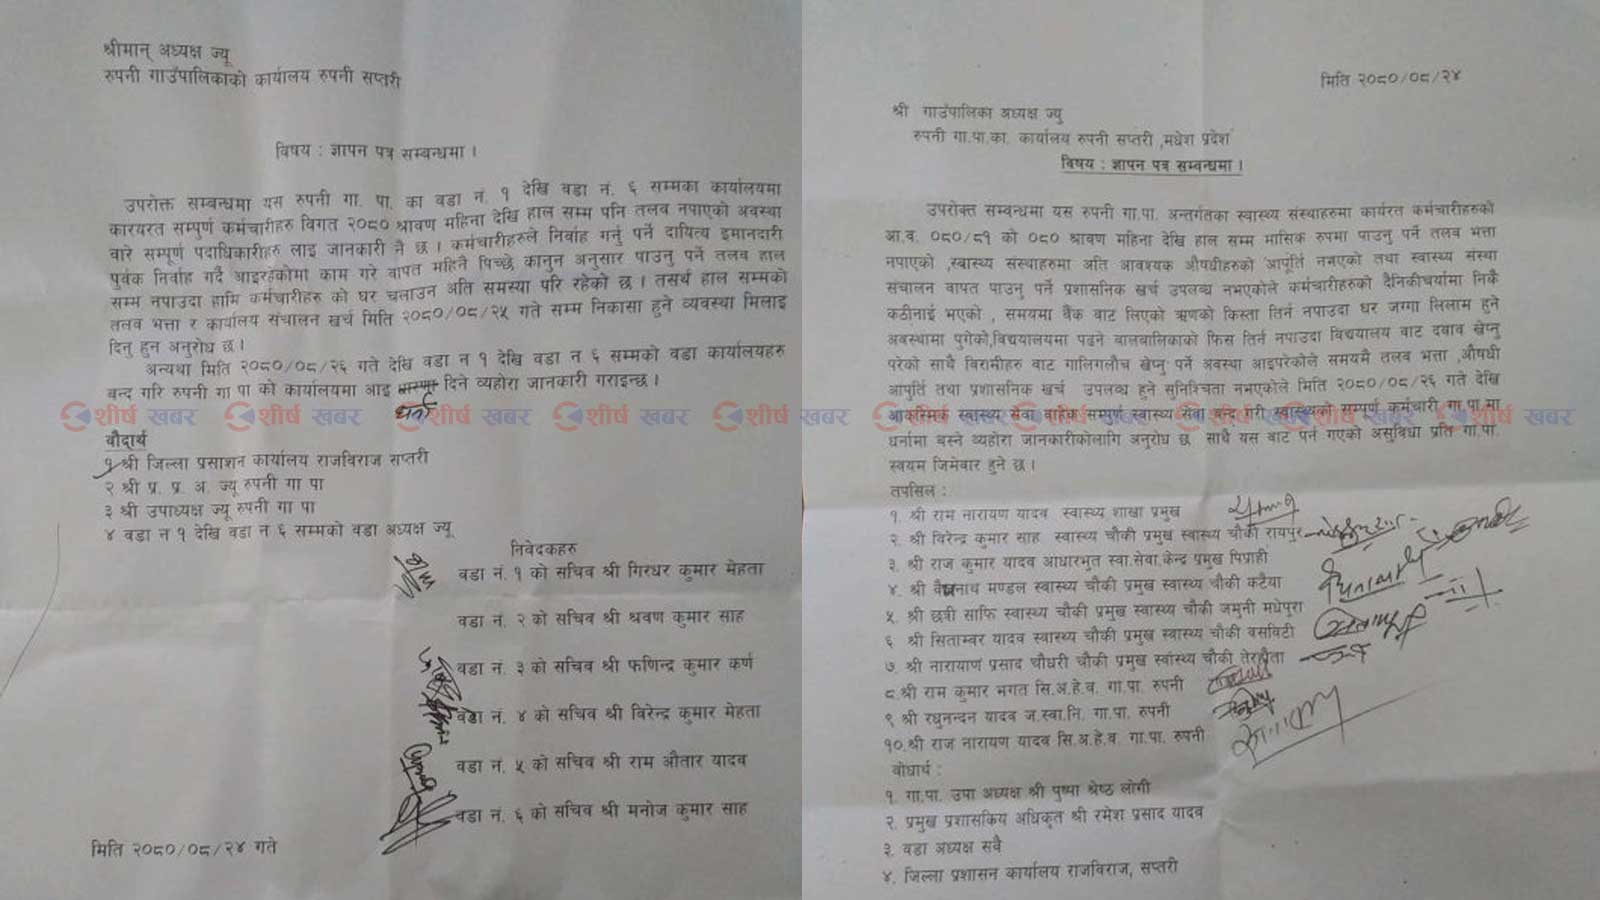 श्रीमान् अध्यक्ष ज्यू
रुपनी गाउँपालिकाको कार्यालय रुपनी सप्तरी
विषय : ज्ञापन पत्र सम्बन्धमा ।
उपरोक्त सम्बन्धमा यस रुपनी गा. पा. का वडा नं. १ देखि वडा नं. ६ सम्मका कार्यालयमा
कारयरत सम्पुर्ण कर्मचारीहरु विगत २०८० श्रावण महिना देखि हाल सम्म पनि तलव नपाएको अवस्था
वारे सम्पूर्ण पदाधिकारीहरु लाइ जानकारी नै छ । कर्मचारीहरुले निर्वाह गर्नु पर्ने दायित्य इमानदारी
पुर्वक निर्वाह गर्दै आइरहेकोमा काम गरे वापत महिनै पिच्छे कानुन अनुसार पाउनु पर्ने तलव हाल
सम्म नपाउदा हामि कर्मचारीहरु को घर चलाउन अति समस्या परि रहेको छ । तसर्थ हाल सम्मको
तलव भत्ता र कार्यालय संचालन खर्च मिति २०८०/०८/२५ गते सम्म निकासा हुने व्यवस्था मिलाइ
दिनु हुन अनुरोध छ ।
अन्यथा मिति २०८०/०८/२६ गते देखि वडा न १ देखि वडा न ६ सम्मको वडा कार्यालयहरु
बन्द गरि रुपनी गा पा को कार्यालयमा आइ दिने व्यहोरा जानकारी गराइन्छ ।
धर्ना
शीर्ष खबर शीर्ष खबर शीर्ष खबर शीर्ष खबर शीर्ष खबर शीर्ष खबर शीर्ष खबर शीर्ष खबर शीर्ष खबर शीर्ष खबर
वौदार्थ
१ श्री जिल्ला प्रसाशन कार्यालय राजविराज सप्तरी
२ श्री प्र. प्र. अ. ज्यू रुपनी गा पा
३ श्री उपाध्यक्ष ज्यू रुपनी गा पा
४ वडा न १ देखि वडा न ६ सम्मको वडा अध्यक्ष ज्यू
निवेदकहरु
वडा नं. १ को सचिव श्री गिरधर कुमार मेहता
वडा नं. २ को सचिव श्री श्रवण कुमार साह
वडा नं. ३ को सचिव श्री फणिन्द्र कुमार कर्ण
वडा नं. ४ को सचिव श्री विरेन्द्र कुमार मेहता
वडा नं. ५ को सचिव श्री राम औतार यादव
वडा नं. ६ को सचिव श्री मनोज कुमार साह
मिति २०८०/०८/२४ गते
मिति २०८०/०८/२४
श्री गाउँपालिका अध्यक्ष ज्यु
रुपनी गा.पा.का. कार्यालय रुपनी सप्तरी ,मधेश प्रदेश
विषय : ज्ञापन पत्र सम्बन्धमा ।
उपरोक्त सम्बन्धमा यस रुपनी गा.पा. अन्तर्गतका स्वास्थ्य संस्थाहरुमा कार्यरत कर्मचारीहरुको
आ.व. ०८०/८१ को ०८० श्रावण महिना देखि हाल सम्म मासिक रुपमा पाउनु पर्ने तलव भत्ता
नपाएको ,स्वास्थ्य संस्थाहरुमा अति आवश्यक औषधीहरुको आपूर्ति नभएको तथा स्वास्थ्य संस्था
संचालन वापत पाउनु पर्ने प्रशासनिक खर्च उपलव्ध नभएकोले कर्मचारीहरुको दैनिकीचर्यामा निकै
कठीनाई भएको , समयमा वैंक वाट लिएको ऋणको किस्ता तिर्न नपाउदा घर जग्गा लिलाम हुने
अवस्थामा पुगेको,विद्ययालयमा पढने बालबालिकाको फिस तिर्न नपाउदा विद्ययालय वाट दवाव खेप्नु
परेको साथै विरामीहरु वाट गालिगलौच खेप्नु पर्ने अवस्था आइपरेकोले समयमै तलव भत्ता ,औषधी
आपुर्ति तथा प्रशासनिक खर्च उपलव्ध हुने सुनिश्चिता नभएकोले मिति २०८०/०८/२६ गते देखि
आकस्मिक स्वास्थ्य सेवा वाहेक सम्पुर्ण स्वास्थ्य सेवा बन्द गरी स्वास्थ्यको सम्पुर्ण कर्मचारी गा.पा.मा
धर्नामा बस्ने व्यहोरा जानकारीकोलागि अनुरोध छ साथै यस वाट पर्न गएको असुविधा प्रति गा.पा.
स्वयम जिमेवार हुने छ ।
तपसिल :
१. श्री राम नारायण यादव स्वास्थ्य शाखा प्रमुख
२. श्री विरेन्द्र कुमार साह स्वास्थ्य चौकी प्रमुख स्वास्थ्य चौकी रायपुर
३. श्री राज कुमार यादव आधारभुत स्वा.सेवा.केन्द्र प्रमुख पिप्राही
४. श्री वैधनाथ मण्डल स्वास्थ्य चौकी प्रमुख स्वास्थ्य चौकी कटैया
५. श्री छत्री साफि स्वास्थ्य चौकी प्रमुख स्वास्थ्य चौकी जमुनी मधेपूरा
६ श्री सिताम्वर यादव स्वास्थ्य चौकी प्रमुख स्वास्थ्य चौकी वसविटी
७. श्री नारायाण प्रसाद चौधरी चौकी प्रमुख स्वास्थ्य चौकी तेरहौता
८.श्री राम कुमार भगत सि.अ.हे.व. गा.पा. रुपनी
९ श्री रघुनन्दन यादव ज.स्वा.नि. गा.पा. रुपनी
१०.श्री राज नारायण यादव सि.अ.हे.व. गा.पा. रुपनी
वोधार्थ :
१. गा.पा. उपा अध्यक्ष श्री पुष्पा श्रेष्ठ लोगी
२. प्रमुख प्रशासकिय अधिकृत श्री रमेश प्रसाद यादव
३. वडा अध्यक्ष सवै
४. जिल्ला प्रशासन कार्यालय राजविराज, सप्तरी